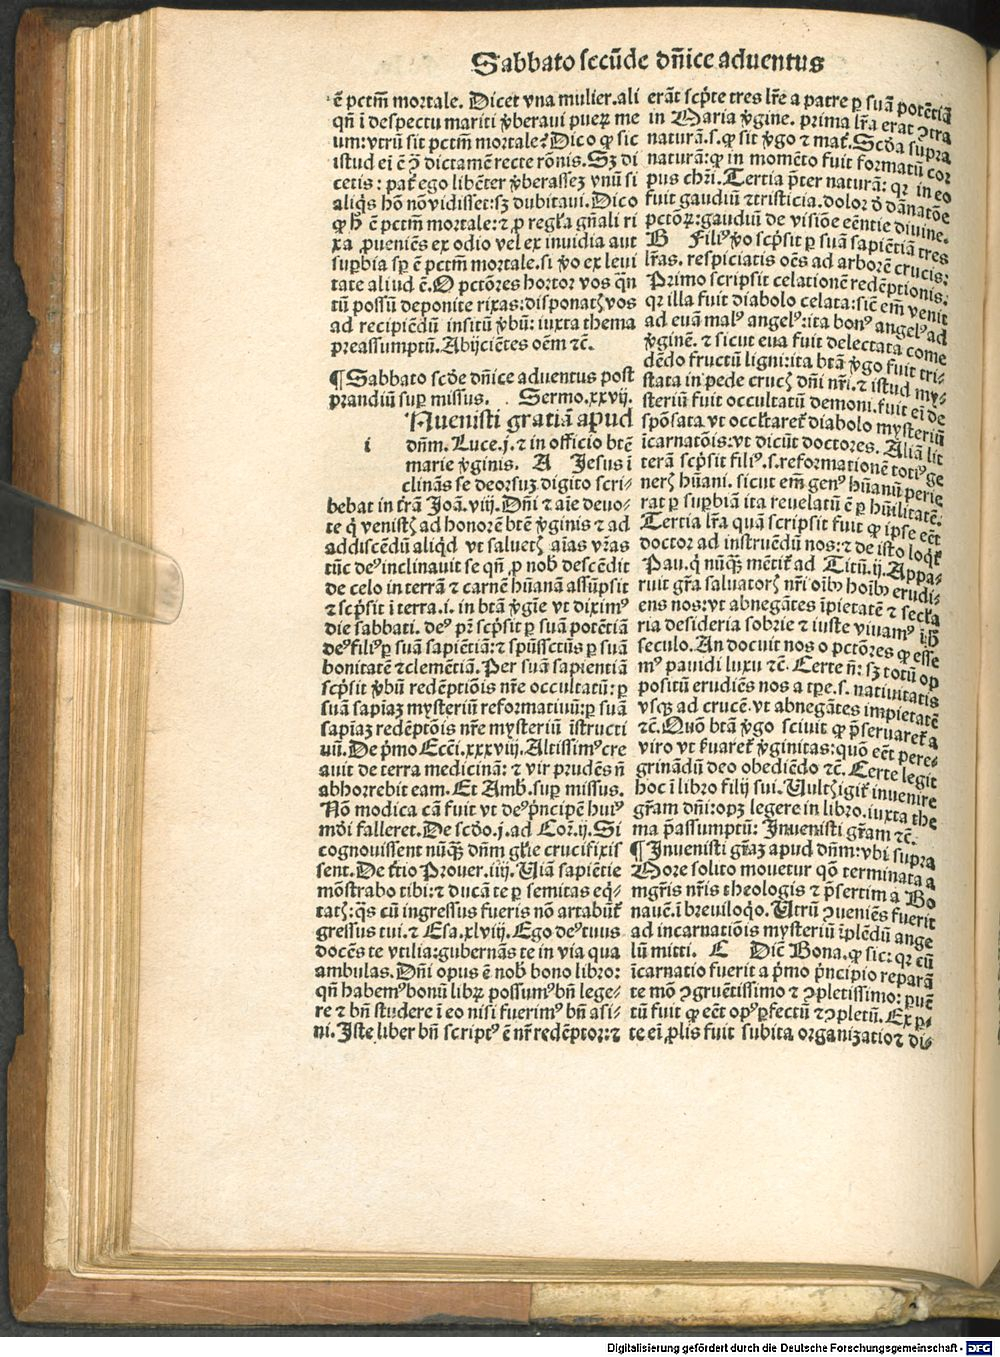 Sabbato secūde dñice aduentus
ē pctm̄ mortale. Dicet vna mulier.ali
qñ ī despectu mariti v̄beraui pueꝝ me
um:vtrū sit pctm̄ mortale? Dico ꝙ sic
istud eī ē ↄ̄ dictamē recte rōnis. Sꝫ di
cetis: pat̄ ego libēter v̄berasseꝫ vnū si
aliq̄s hō nō vidisset:sꝫ dubitaui. Dico
ꝙ h̄ ē pctm̄ mortale:⁊ ꝓ regl̄a gñali ri
xa ꝓueniēs ex odio vel ex inuidia aut
suꝑbia sꝑ ē pctm̄ mortale.si v̄o ex leui
tate aliud ē.O pctōres hortor vos qñ
tū possū deponite rixas:disponatꝭ vos
ad recipiēdū insitū v̄bū: iuxta thema
preassumptū. Abijciētes oēm ⁊c̄.
¶ Sabbato scōe dñice aduentus post
prandiū suꝑ missus. Sermo.xxvij.
Nuenisti gratiā apud
i dñm. Luce.j.⁊ in officio btē
marie v̄ginis. A Jesus ī
clinās se deorsuꝫ digito scri⸗
bebat in t̄rā Joā.viij. Dñi ⁊ aīe deuo⸗
te q̇ venistꝭ ad honorē btē v̄ginis ⁊ ad
addiscēdū aliq̄d vt saluetꝭ aīas vr̄as
tūc deꝰ inclinauit se qñ ꝓ nob̄ descēdit
de celo in terrā ⁊ carnē hūanā assūpsit
⁊ scp̄sit ī terra.i. in btā v̄gīe vt diximꝰ
die sabbati. deꝰ pr̄ scp̄sit ꝑ suā potētiā
deꝰ filiꝰ ꝑ suā sapiētiā:⁊ spūssctūs ꝑ suā
bonitatē ⁊clemētiā. Per suā sapientiā
scp̄sit v̄bū redēptiōis nr̄e occultatū: ꝑ
suā sapiaꝫ mysteriū reformatiuū:ꝑ suā
sapiaꝫ redēptōis nr̄e mysteriū īstructi
uū. De p̄mo Eccī.xxxviij. Altissimꝰ cre
auit de terra medicinā: ⁊ vir prudēs ñ
abhorrebit eam. Et Amb̄. suꝑ missus.
Nō modica cā fuit vt deꝰ p̄ncipē huiꝰ
mōi falleret. De scōo.j.ad Cor̄.ij. Si
cognouissent nūq̄ꝫ dñm gl̄ie crucifixis
sent. De t̄tio Prouer.iiij. Uiā sapiētie
mōstrabo tibi:⁊ ducā te ꝑ semitas eq̄⸗
tatꝭ:q̄s cū ingressus fueris nō artabūt̄
gressus tui. ⁊ Esa.xlviij. Ego deꝰ tuus
docēs te vtilia:gubernās te in via qua
ambulas. Dñi opus ē nob̄ bono libro:
qñ habemꝰ bonū libꝝ possumꝰ bñ lege⸗
re ⁊ bñ studere ī eo nisi fuerimꝰ bñ asi⸗
ni. Iste liber bñ scriptꝰ ē nr̄ redēptor:⁊
erāt scp̄te tres lr̄e a patre ꝑ suā potētiā
in Maria v̄gine. prima lr̄a erat ↄtra
naturā.s.ꝙ sit v̄go ⁊ mat̄. Scōa supra
naturā:ꝙ in momēto fuit formatū cor
pus chr̄i. Tertia p̄ter naturā: qꝛ in eo
fuit gaudiū ⁊tristicia.dolor ō dānatōe
pctōꝝ:gaudiū de visiōe eēntie diuine.
B Filiꝰ v̄o scp̄sit ꝑ suā sapiētiā tres
lr̄as. respiciatis oēs ad arborē crucis:
Primo scripsit celationē redēptionis.
qꝛ illa fuit diabolo celata:sic̄ em̄ venit
ad euā malꝰ angelꝰ:ita bonꝰ angelꝰ ad
v̄ginē. ⁊ sicut eua fuit delectata come
dēdo fructū ligni:ita btā v̄go fuit tri⸗
stata in pede crucꝭ dñi nr̄i.⁊ istud my⸗
steriū fuit occultatū demoni.fuit eī de
spōsata vt occl̄taret̄ diabolo mysteriū
īcarnatōis:vt dicūt doctores. Aliā lit
terā scp̄sit filiꝰ.s.reformationē totiꝰ ge
nerꝭ hūani. sicut em̄ genꝰ hūanū perie
rat ꝑ suꝑbiā ita reuelatū ē ꝑ hūilitatē.
Tertia lr̄a quā scripsit fuit ꝙ ipse eēt
doctor ad instruēdū nos:⁊ de isto loq̄t̄
Pau. q̇ nūq̄ꝫ mētit̄ ad Titū.ij. Appa⸗
ruit gr̄a saluatorꝭ nr̄i oīb⁊ hoīb⁊ erudi⸗
ens nos:vt abnegātes īpietatē ⁊ secl̄a
ria desideria sobrie ⁊ iuste viuamꝰ ī h̄
seculo. An docuit nos o pctōres ꝙ esse
mꝰ pauidi luxu ⁊c̄. Certe ñ: sꝫ totū op
positū erudiēs nos a tꝑe.s. natiuitatis
vsqꝫ ad crucē.vt abnegātes impietatē
⁊c̄. Quō btā v̄go sciuit ꝙ p̄seruaret̄ a
viro vt ſuaret̄ v̄ginitas:quō eēt pere⸗
grinādū deo obediēdo ⁊c̄. Certe legit
hoc ī libro filij sui. Uultꝭ igit̄ inuenire
gr̄am dñi:opꝫ legere in libro.iuxta the
ma p̄assumptū: Inuenisti gr̄am ⁊c̄.
¶ Inuenisti gr̄aꝫ apud dñm:vbi supra
More solito mouetur qō terminata a
mgr̄is nr̄is theologis ⁊ p̄sertim a Bo
nauē.ī breuiloqō. Utrū ↄueniēs fuerit
ad incarnatiōis mysteriū īplēdū ange
lū mitti. C Dic̄ Bona.ꝙ sic: qꝛ cū
īcarnatio fuerit a p̄mo p̄ncipio reparā
te mō ↄgruētissimo ⁊ ↄpletissimo: ꝓuē
tū fuit ꝙ eēt opꝰ ꝑfectū ⁊ ↄpletū. Ex ꝑ⸗
te eī ꝓlis fuit subita organizatio⁊ di⸗
Digitalisierung gefördert durch die Deutsche Forschungsgemeinschaft - DFG